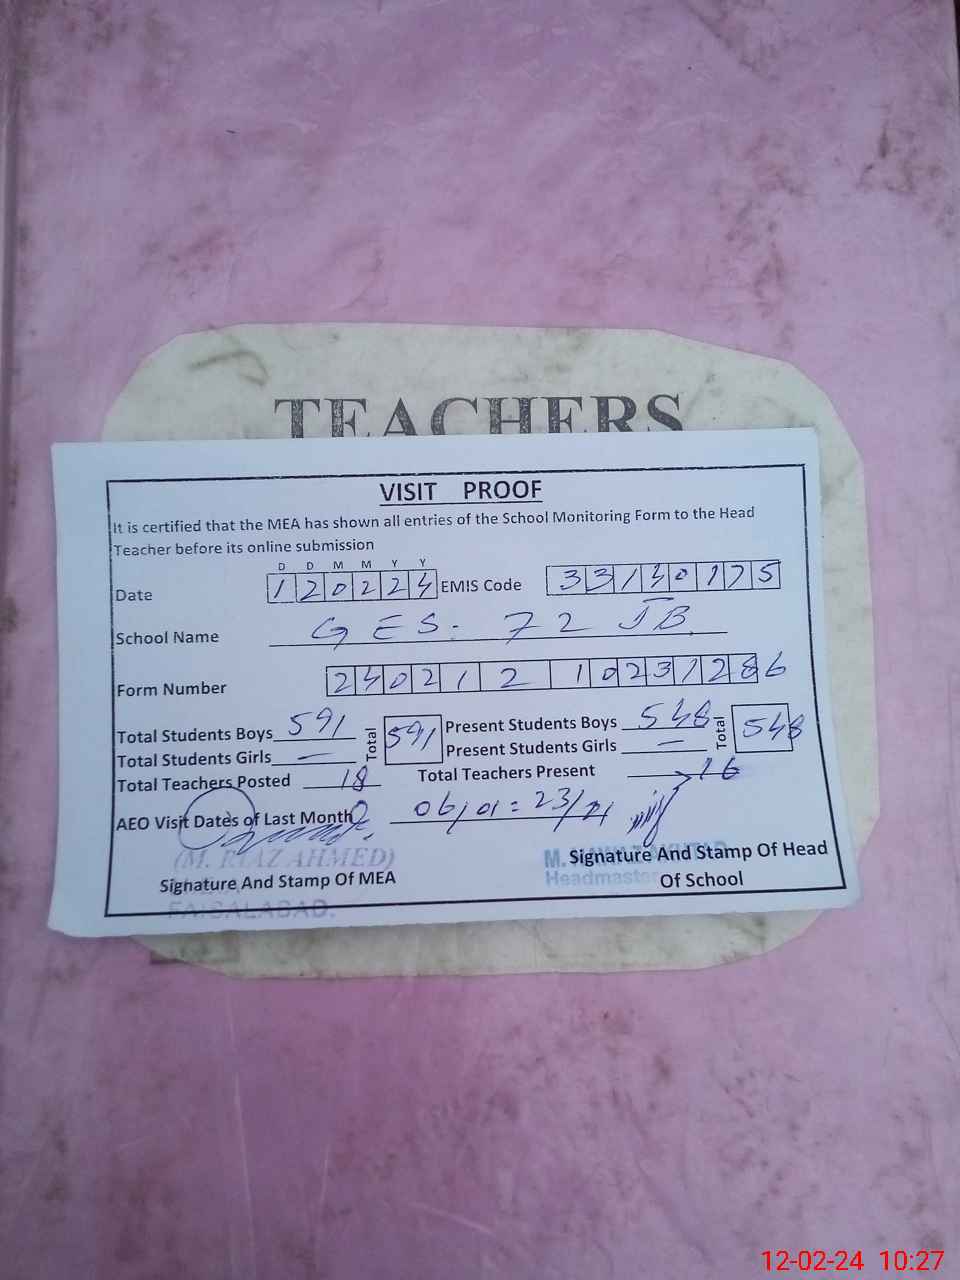 TEACHERS
VISIT PROOF
It is certified that the MEA has shown all entries of the School Monitoring Form to the Head
Teacher before its online submission
D D M M Y Y
Date 120224 EMIS Code 33130175
School Name GES. 72 JB
Form Number 240212 2 10231286
Total Students Boys 591 Total 591 Present Students Boys 548 Total 548
Total Students Girls — Present Students Girls —
Total Teachers Posted 18 Total Teachers Present 16
AEO Visit Dates of Last Month 06/01 = 23/
(M. RIAZ AHMED)
Signature And Stamp Of MEA
FAISALABAD.
M. Signature And Stamp Of Head
Headmaster Of School
12-02-24 10:27